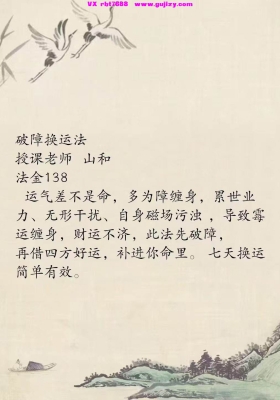 VX rbl7688 www.gujizy.com
破障换运法
授课老师 山和
法金138
运气差不是命，多为障缠身，累世业
力、无形干扰、自身磁场污浊 ，导致霉
运缠身，财运不济，此法先破障，
再借四方好运，补进你命里。 七天换运
简单有效。